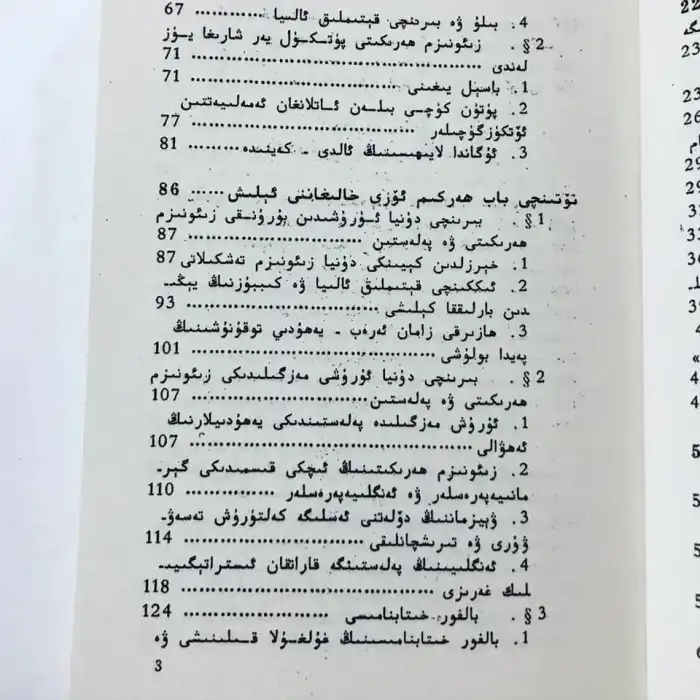 4. بىلۇ ۋە بىرىنچى قېتىملىق ئالىيا ........ 67
§ 2. زىئونىزم ھەرىكىتى پۈتكۈل يەر شارىغا يۈز
لەندى ........ 71
1. باسېل يىغىنى ........ 71
2. پۈتۈن كۈچى بىلەن ئاتلانغان ئەمەلىيەتتىن
ئۆتكۈزگۈچىلەر ........ 77
3. ئۇگاندا لايىھىسىنىڭ ئالدى - كەينىدە ........ 81
تۆتىنچى باب ھەركىم ئۆزى خالىغاننى ئېلىش ...... 86
§ 1. بىرىنچى دۇنيا ئۇرۇشىدىن بۇرۇنقى زىئونىزم
ھەرىكىتى ۋە پەلەستىن ........ 87
1. خېرزلدىن كېيىنكى دۇنيا زىئونىزم تەشكىلاتى 87
2. ئىككىنچى قېتىملىق ئالىيا ۋە كىببۇزنىڭ يېڭى-
دىن بارلىققا كېلىشى ........ 93
3. ھازىرقى زامان ئەرەب - يەھۇدىي توقۇنۇشىنىڭ
پەيدا بولۇشى ........ 101
§ 2. بىرىنچى دۇنيا ئۇرۇشى مەزگىلىدىكى زىئونىزم
ھەرىكىتى ۋە پەلەستىن ........ 107
1. ئۇرۇش مەزگىلىدە پەلەستىندىكى يەھۇدىيلارنىڭ
ئەھۋالى ........ 107
2. زىئونىزم ھەرىكىتىنىڭ ئىچكى قىسمىدىكى گېر-
مانىيەپەرەسلەر ۋە ئەنگلىيەپەرەسلەر ........ 110
3. ۋېيزماننىڭ دۆلەتنى ئەسلىگە كەلتۈرۈش تەسەۋ-
ۋۇرى ۋە تىرىشچانلىقى ........ 114
4. ئەنگلىيىنىڭ پەلەستىنگە قاراتقان ئىستراتېگىيى-
لىك غەرىزى ........ 118
§ 3. بالفور خىتابنامىسى ........ 124
1. بالفور خىتابنامىسىنىڭ ئېلان قىلىنىشى ۋە
3
22
23
23
26
29
29